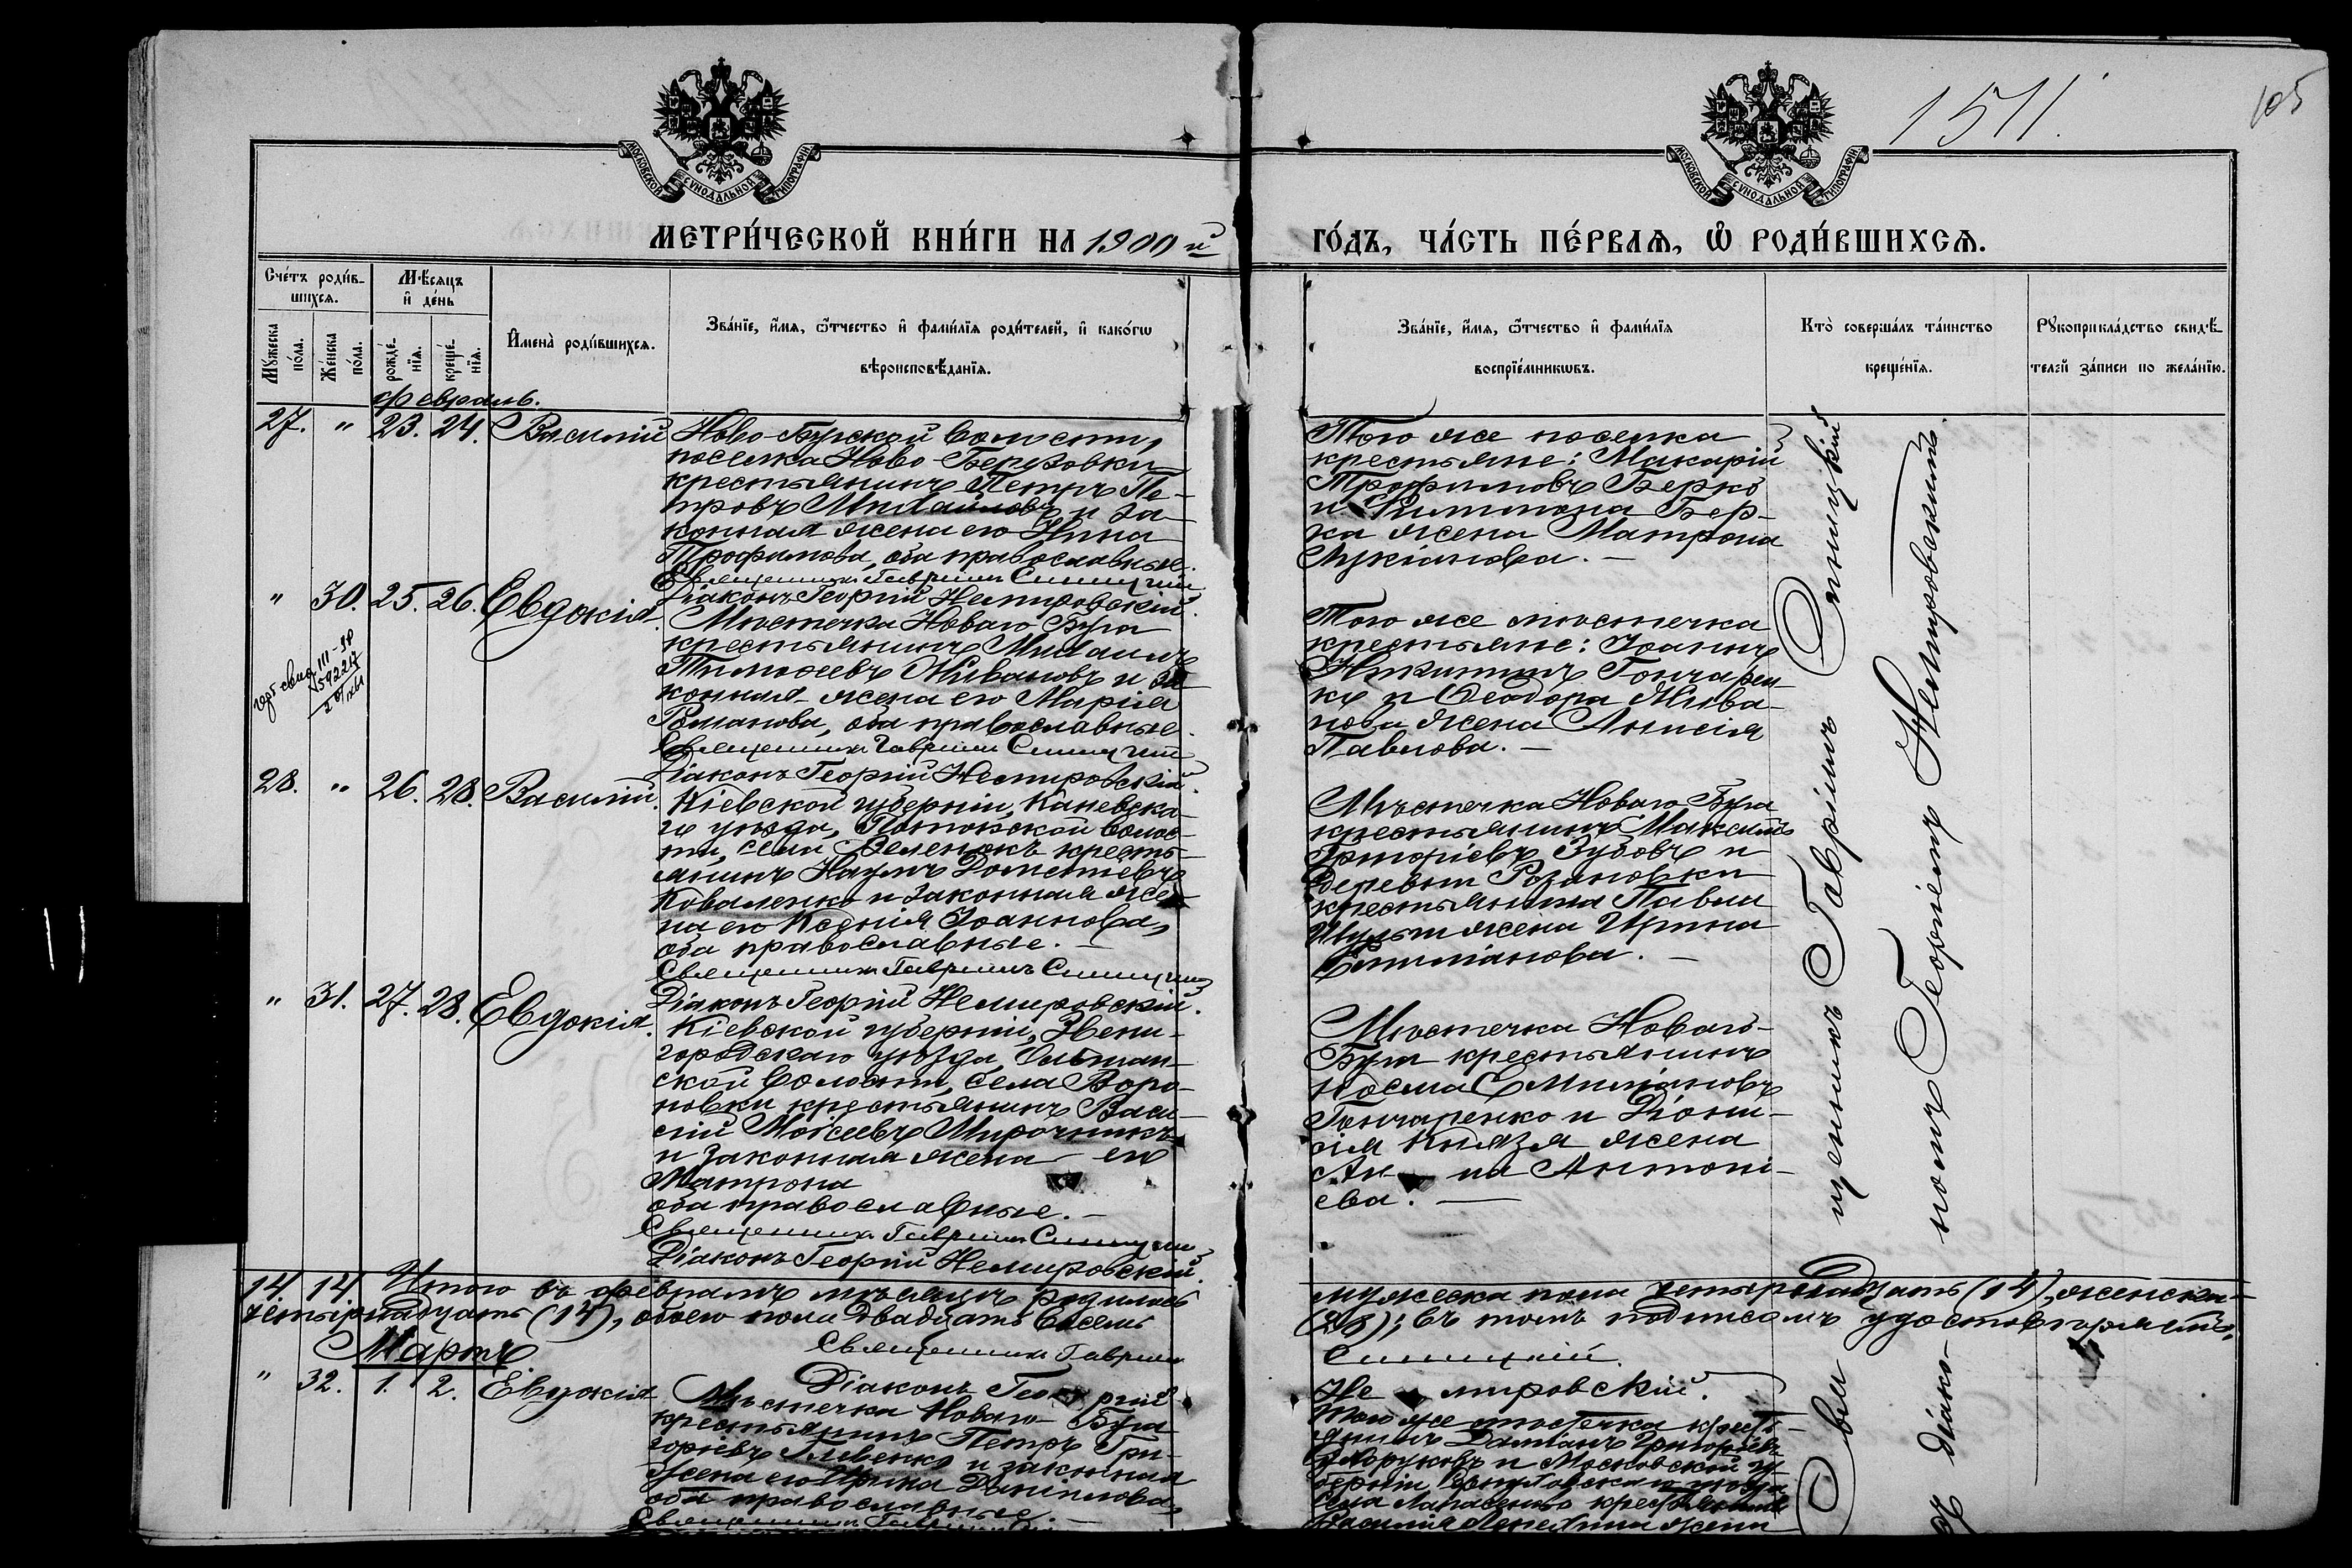 1511.
105
МОСКОВСКОЙ СѴНОДАЛЬНОЙ ТИПОГРАФІИ
МОСКОВСКОЙ СѴНОДАЛЬНОЙ ТИПОГРАФІИ
МЕТРИ́ЧЕСКОЙ КНИ́ГИ НА 1900й ГО́ДЪ, ЧА́СТЬ ПЕ́РВАѦ, Ѡ҆ РОДИ́ВШИХСѦ.
Сче́тъ роди́в-
шихсѧ.
Мꙋ́жеска по́ла.
Же́нска по́ла.
Мѣ́сѧцъ
и҆ де́нь
рожде́-
нїѧ.
креще́-
нїѧ.
И҆мена̀ роди́вшихсѧ.
Зва́нїе, и҆́мѧ, ѻ҆́тчество и҆ фами́лїѧ роди́телей, и҆ како́гѡ
вѣроисповѣ́данїѧ.
Зва́нїе, и҆́мѧ, ѻ҆́тчество и҆ фами́лїѧ
воспрїе́мникѡвъ.
Кто̀ соверша́лъ та́инство
креще́нїѧ.
Рꙋкоприкла́дство свидѣ́-
телей за́писи по жела́нїю.
Февраль.
27. " 23. 24. Василій
Ново-Бугской волости,
поселка Ново-Березовки
крестьянинъ Петръ Пе-
тровъ Михайловъ и за-
конная жена его Нина
Трофимова, оба православные.
Священникъ Гавріилъ Синицкій
Діаконъ Георгій Немировскій.
Того же поселка
крестьяне: Макарій
Трофимовъ Берко
и Филиппа Бер-
ка жена Матрона
Лукіанова. —
" 30. 25. 26. Евдокія.
Мѣстечка Новаго Буга
крестьянинъ Михаилъ
Тимоѳеевъ Живановъ и за-
конная жена его Марія
Романова, оба православные.
Священникъ Гавріилъ Синицкій
Діаконъ Георгій Немировскій.
Того же мѣстечка
крестьяне: Іоаннъ
Никитинъ Гончарен-
ко и Ѳеодора Жива-
нова жена Анисія
Павлова. —
28. " 26. 28. Василій.
Кіевской губерніи, Каневска-
го уѣзда, Потокской волос-
ти, села Зеленокъ кресть-
янинъ Наумъ Дометіевъ
Коваленко и законная же-
на его Ксенія Іоаннова,
оба православные. —
Священникъ Гавріилъ Синицкій
Діаконъ Георгій Немировскій.
Мѣстечка Новаго Буга
крестьянинъ Максимъ
Григоріевъ Зубовъ и
деревни Розановки
крестьянина Павла
Шульги жена Ирина
Емиліанова. —
" 31. 27. 28. Евдокія.
Кіевской губерніи, Звени-
городскаго уѣзда, Ольшан-
ской волости, села Воро-
новки крестьянинъ Васи-
лій Моисеевъ Мирочникъ
и законная жена его
Матрона
оба православные. —
Священникъ Гавріилъ Синицкій
Діаконъ Георгій Немировскій.
Мѣстечка Новаго-
Буга крестьянинъ
Косма Емиліановъ
Гончаренко и Діони-
сія Князя жена
Ан на Антоні-
ева. —
Священникъ Гавріилъ Синицкій
съ діако-
номъ Георгіемъ Немировскимъ.
14. 14. Итого въ февралѣ мѣсяцѣ родилось мужеска пола четырнадцать (14), женска-
четырнадцать (14), обоего пола двадцать восемь (28); въ томъ подписомъ удостовѣряемъ.
Священникъ Гавріилъ Синицкій.
Діаконъ Георгій Немировскій.
Мартъ
" 32. 1. 2. Евдокія
Мѣстечка Новаго Буга
крестьянинъ Петръ Гри-
горіевъ Глевенко и законная
жена его Ирина Даніилова,
оба православные. —
Священникъ Гавріилъ
Того же мѣстечка кресть-
янинъ Даміанъ Григоріевъ
и Московской гу-
берніи уѣзда,
села крестьянина
Василія жена